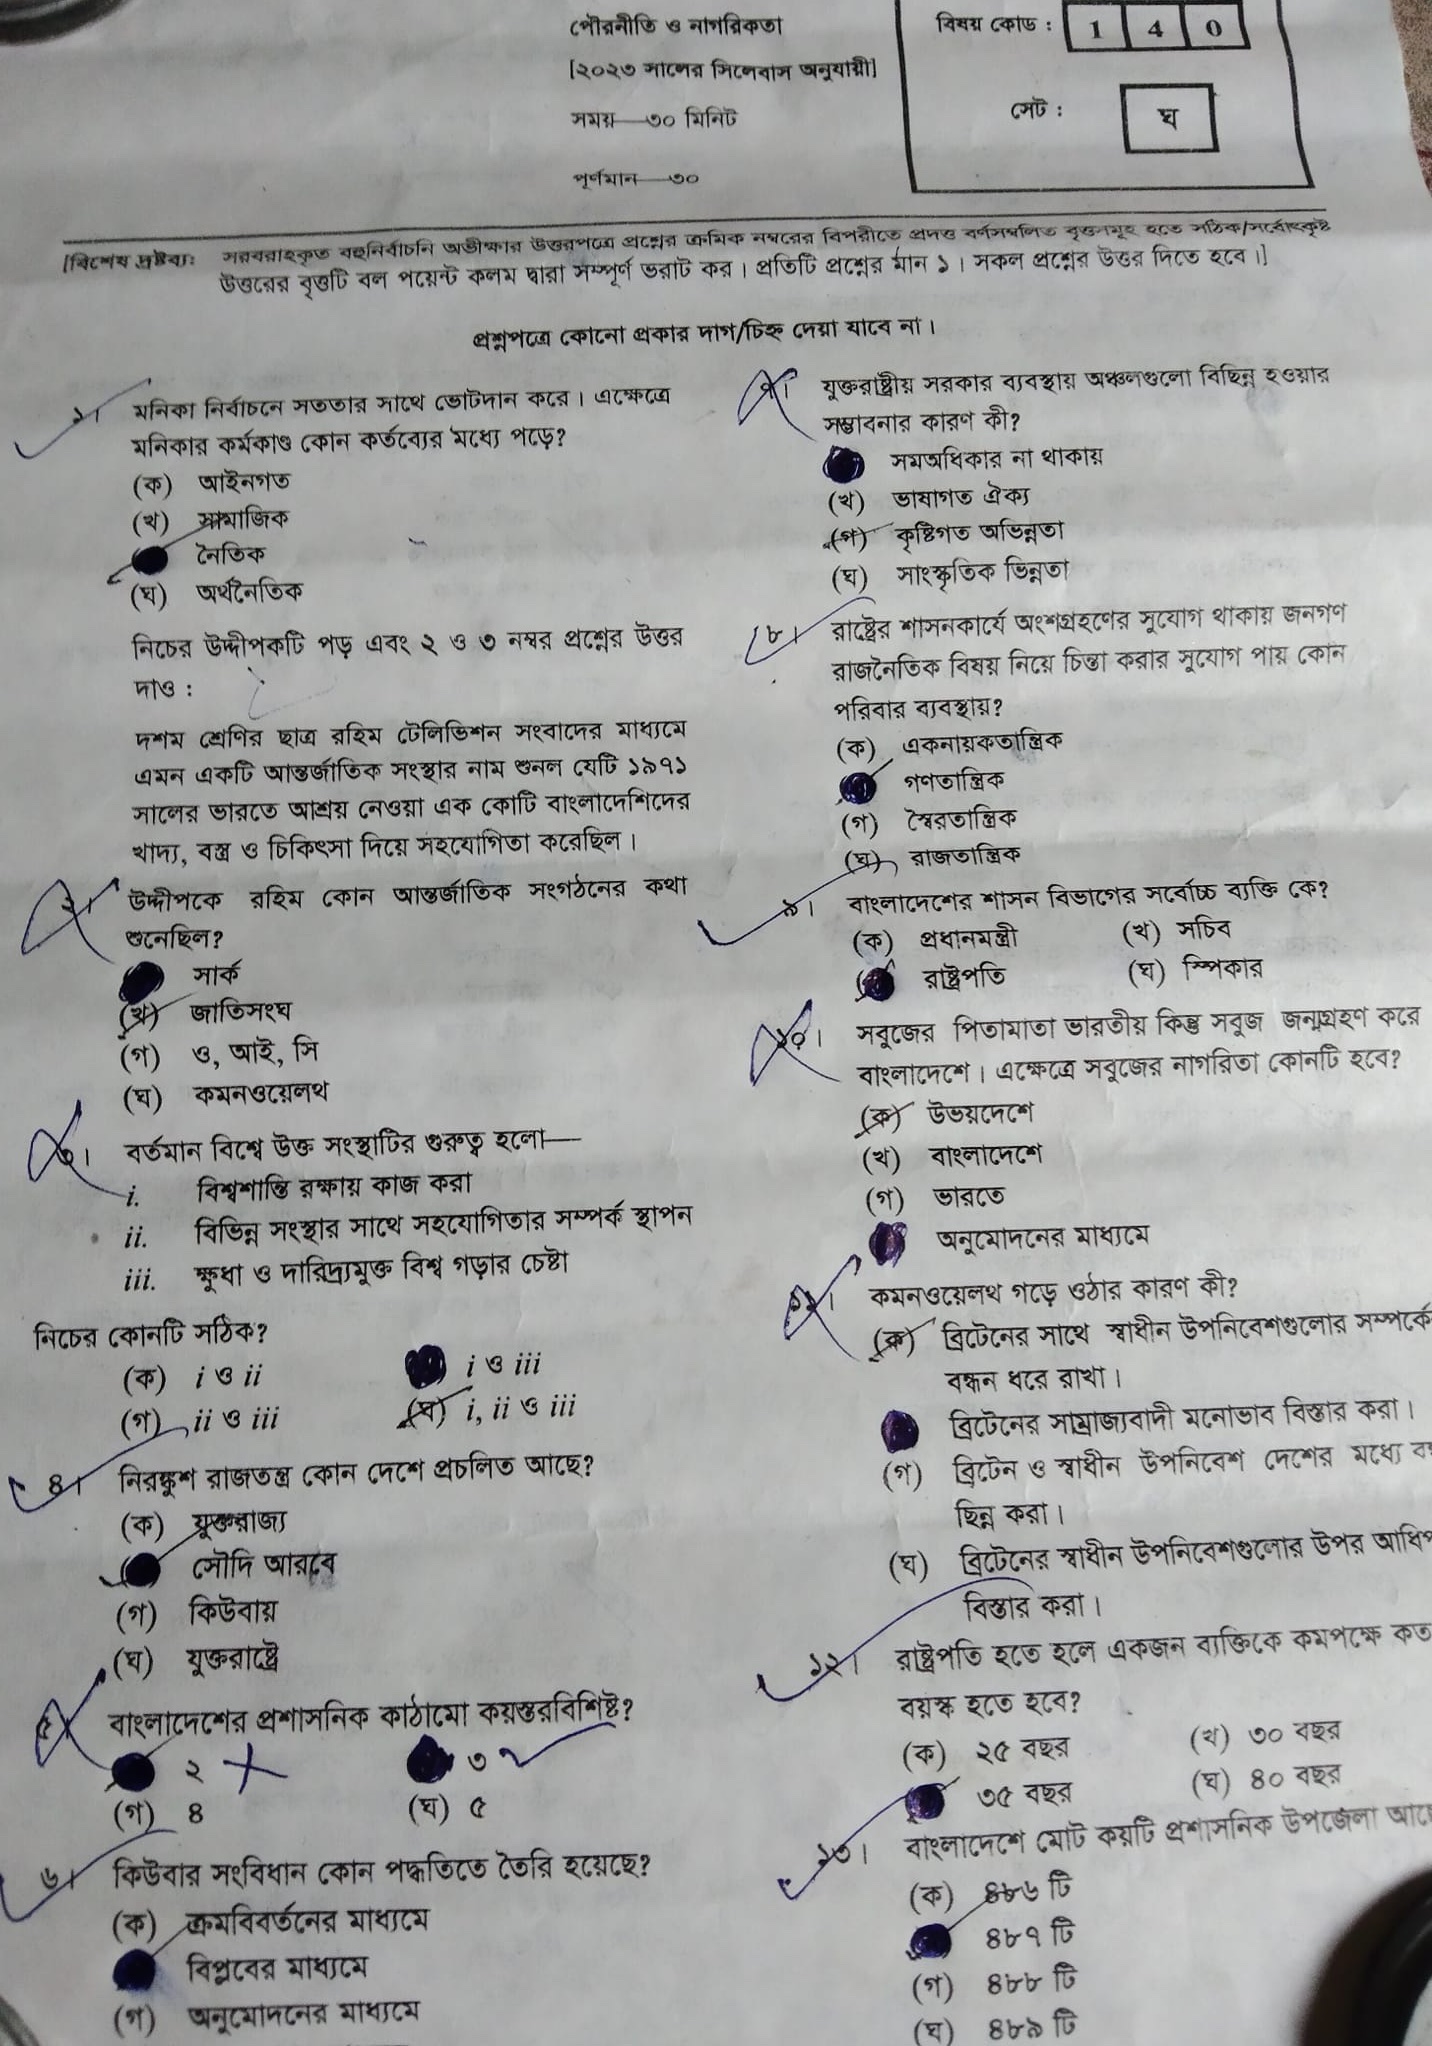 পৌরনীতি ও নাগরিকতা
[২০২৩ সালের সিলেবাস অনুযায়ী]
সময়—৩০ মিনিট
পূর্ণমান—৩০
বিষয় কোড : 1 4 0
সেট : ঘ
[বিশেষ দ্রষ্টব্য: সরবরাহকৃত বহুনির্বাচনি অভীক্ষার উত্তরপত্রে প্রশ্নের ক্রমিক নম্বরের বিপরীতে প্রদত্ত বর্ণসম্বলিত বৃত্তসমূহ হতে সঠিক/সর্বোৎকৃষ্ট
উত্তরের বৃত্তটি বল পয়েন্ট কলম দ্বারা সম্পূর্ণ ভরাট কর। প্রতিটি প্রশ্নের মান ১। সকল প্রশ্নের উত্তর দিতে হবে।]
প্রশ্নপত্রে কোনো প্রকার দাগ/চিহ্ন দেয়া যাবে না।
১। মনিকা নির্বাচনে সততার সাথে ভোটদান করে। এক্ষেত্রে
মনিকার কর্মকাণ্ড কোন কর্তব্যের মধ্যে পড়ে?
(ক) আইনগত
(খ) সামাজিক
নৈতিক
(ঘ) অর্থনৈতিক
নিচের উদ্দীপকটি পড় এবং ২ ও ৩ নম্বর প্রশ্নের উত্তর
দাও :
দশম শ্রেণির ছাত্র রহিম টেলিভিশন সংবাদের মাধ্যমে
এমন একটি আন্তর্জাতিক সংস্থার নাম শুনল যেটি ১৯৭১
সালের ভারতে আশ্রয় নেওয়া এক কোটি বাংলাদেশিদের
খাদ্য, বস্ত্র ও চিকিৎসা দিয়ে সহযোগিতা করেছিল।
২। উদ্দীপকে রহিম কোন আন্তর্জাতিক সংগঠনের কথা
শুনেছিল?
সার্ক
(খ) জাতিসংঘ
(গ) ও, আই, সি
(ঘ) কমনওয়েলথ
৩। বর্তমান বিশ্বে উক্ত সংস্থাটির গুরুত্ব হলো—
i. বিশ্বশান্তি রক্ষায় কাজ করা
ii. বিভিন্ন সংস্থার সাথে সহযোগিতার সম্পর্ক স্থাপন
iii. ক্ষুধা ও দারিদ্র্যমুক্ত বিশ্ব গড়ার চেষ্টা
নিচের কোনটি সঠিক?
(ক) i ও ii i ও iii
(গ) ii ও iii (ঘ) i, ii ও iii
৪। নিরঙ্কুশ রাজতন্ত্র কোন দেশে প্রচলিত আছে?
(ক) যুক্তরাজ্য
সৌদি আরবে
(গ) কিউবায়
(ঘ) যুক্তরাষ্ট্রে
৫। বাংলাদেশের প্রশাসনিক কাঠামো কয়স্তরবিশিষ্ট?
২ ৩
(গ) ৪ (ঘ) ৫
৬। কিউবার সংবিধান কোন পদ্ধতিতে তৈরি হয়েছে?
(ক) ক্রমবিবর্তনের মাধ্যমে
বিপ্লবের মাধ্যমে
(গ) অনুমোদনের মাধ্যমে
৭। যুক্তরাষ্ট্রীয় সরকার ব্যবস্থায় অঞ্চলগুলো বিছিন্ন হওয়ার
সম্ভাবনার কারণ কী?
সমঅধিকার না থাকায়
(খ) ভাষাগত ঐক্য
(গ) কৃষ্টিগত অভিন্নতা
(ঘ) সাংস্কৃতিক ভিন্নতা
৮। রাষ্ট্রের শাসনকার্যে অংশগ্রহণের সুযোগ থাকায় জনগণ
রাজনৈতিক বিষয় নিয়ে চিন্তা করার সুযোগ পায় কোন
পরিবার ব্যবস্থায়?
(ক) একনায়কতান্ত্রিক
গণতান্ত্রিক
(গ) স্বৈরতান্ত্রিক
(ঘ) রাজতান্ত্রিক
৯। বাংলাদেশের শাসন বিভাগের সর্বোচ্চ ব্যক্তি কে?
(ক) প্রধানমন্ত্রী (খ) সচিব
রাষ্ট্রপতি (ঘ) স্পিকার
১০। সবুজের পিতামাতা ভারতীয় কিন্তু সবুজ জন্মগ্রহণ করে
বাংলাদেশে। এক্ষেত্রে সবুজের নাগরিতা কোনটি হবে?
(ক) উভয়দেশে
(খ) বাংলাদেশে
(গ) ভারতে
অনুমোদনের মাধ্যমে
১১। কমনওয়েলথ গড়ে ওঠার কারণ কী?
(ক) ব্রিটেনের সাথে স্বাধীন উপনিবেশগুলোর সম্পর্কে
বন্ধন ধরে রাখা।
ব্রিটেনের সাম্রাজ্যবাদী মনোভাব বিস্তার করা।
(গ) ব্রিটেন ও স্বাধীন উপনিবেশ দেশের মধ্যে
ছিন্ন করা।
(ঘ) ব্রিটেনের স্বাধীন উপনিবেশগুলোর উপর
বিস্তার করা।
১২। রাষ্ট্রপতি হতে হলে একজন ব্যক্তিকে কমপক্ষে কত
বয়স্ক হতে হবে?
(ক) ২৫ বছর (খ) ৩০ বছর
৩৫ বছর (ঘ) ৪০ বছর
১৩। বাংলাদেশে মোট কয়টি প্রশাসনিক উপজেলা
(ক) ৪৮৬ টি
৪৮৭ টি
(গ) ৪৮৮ টি
(ঘ) ৪৮৯ টি